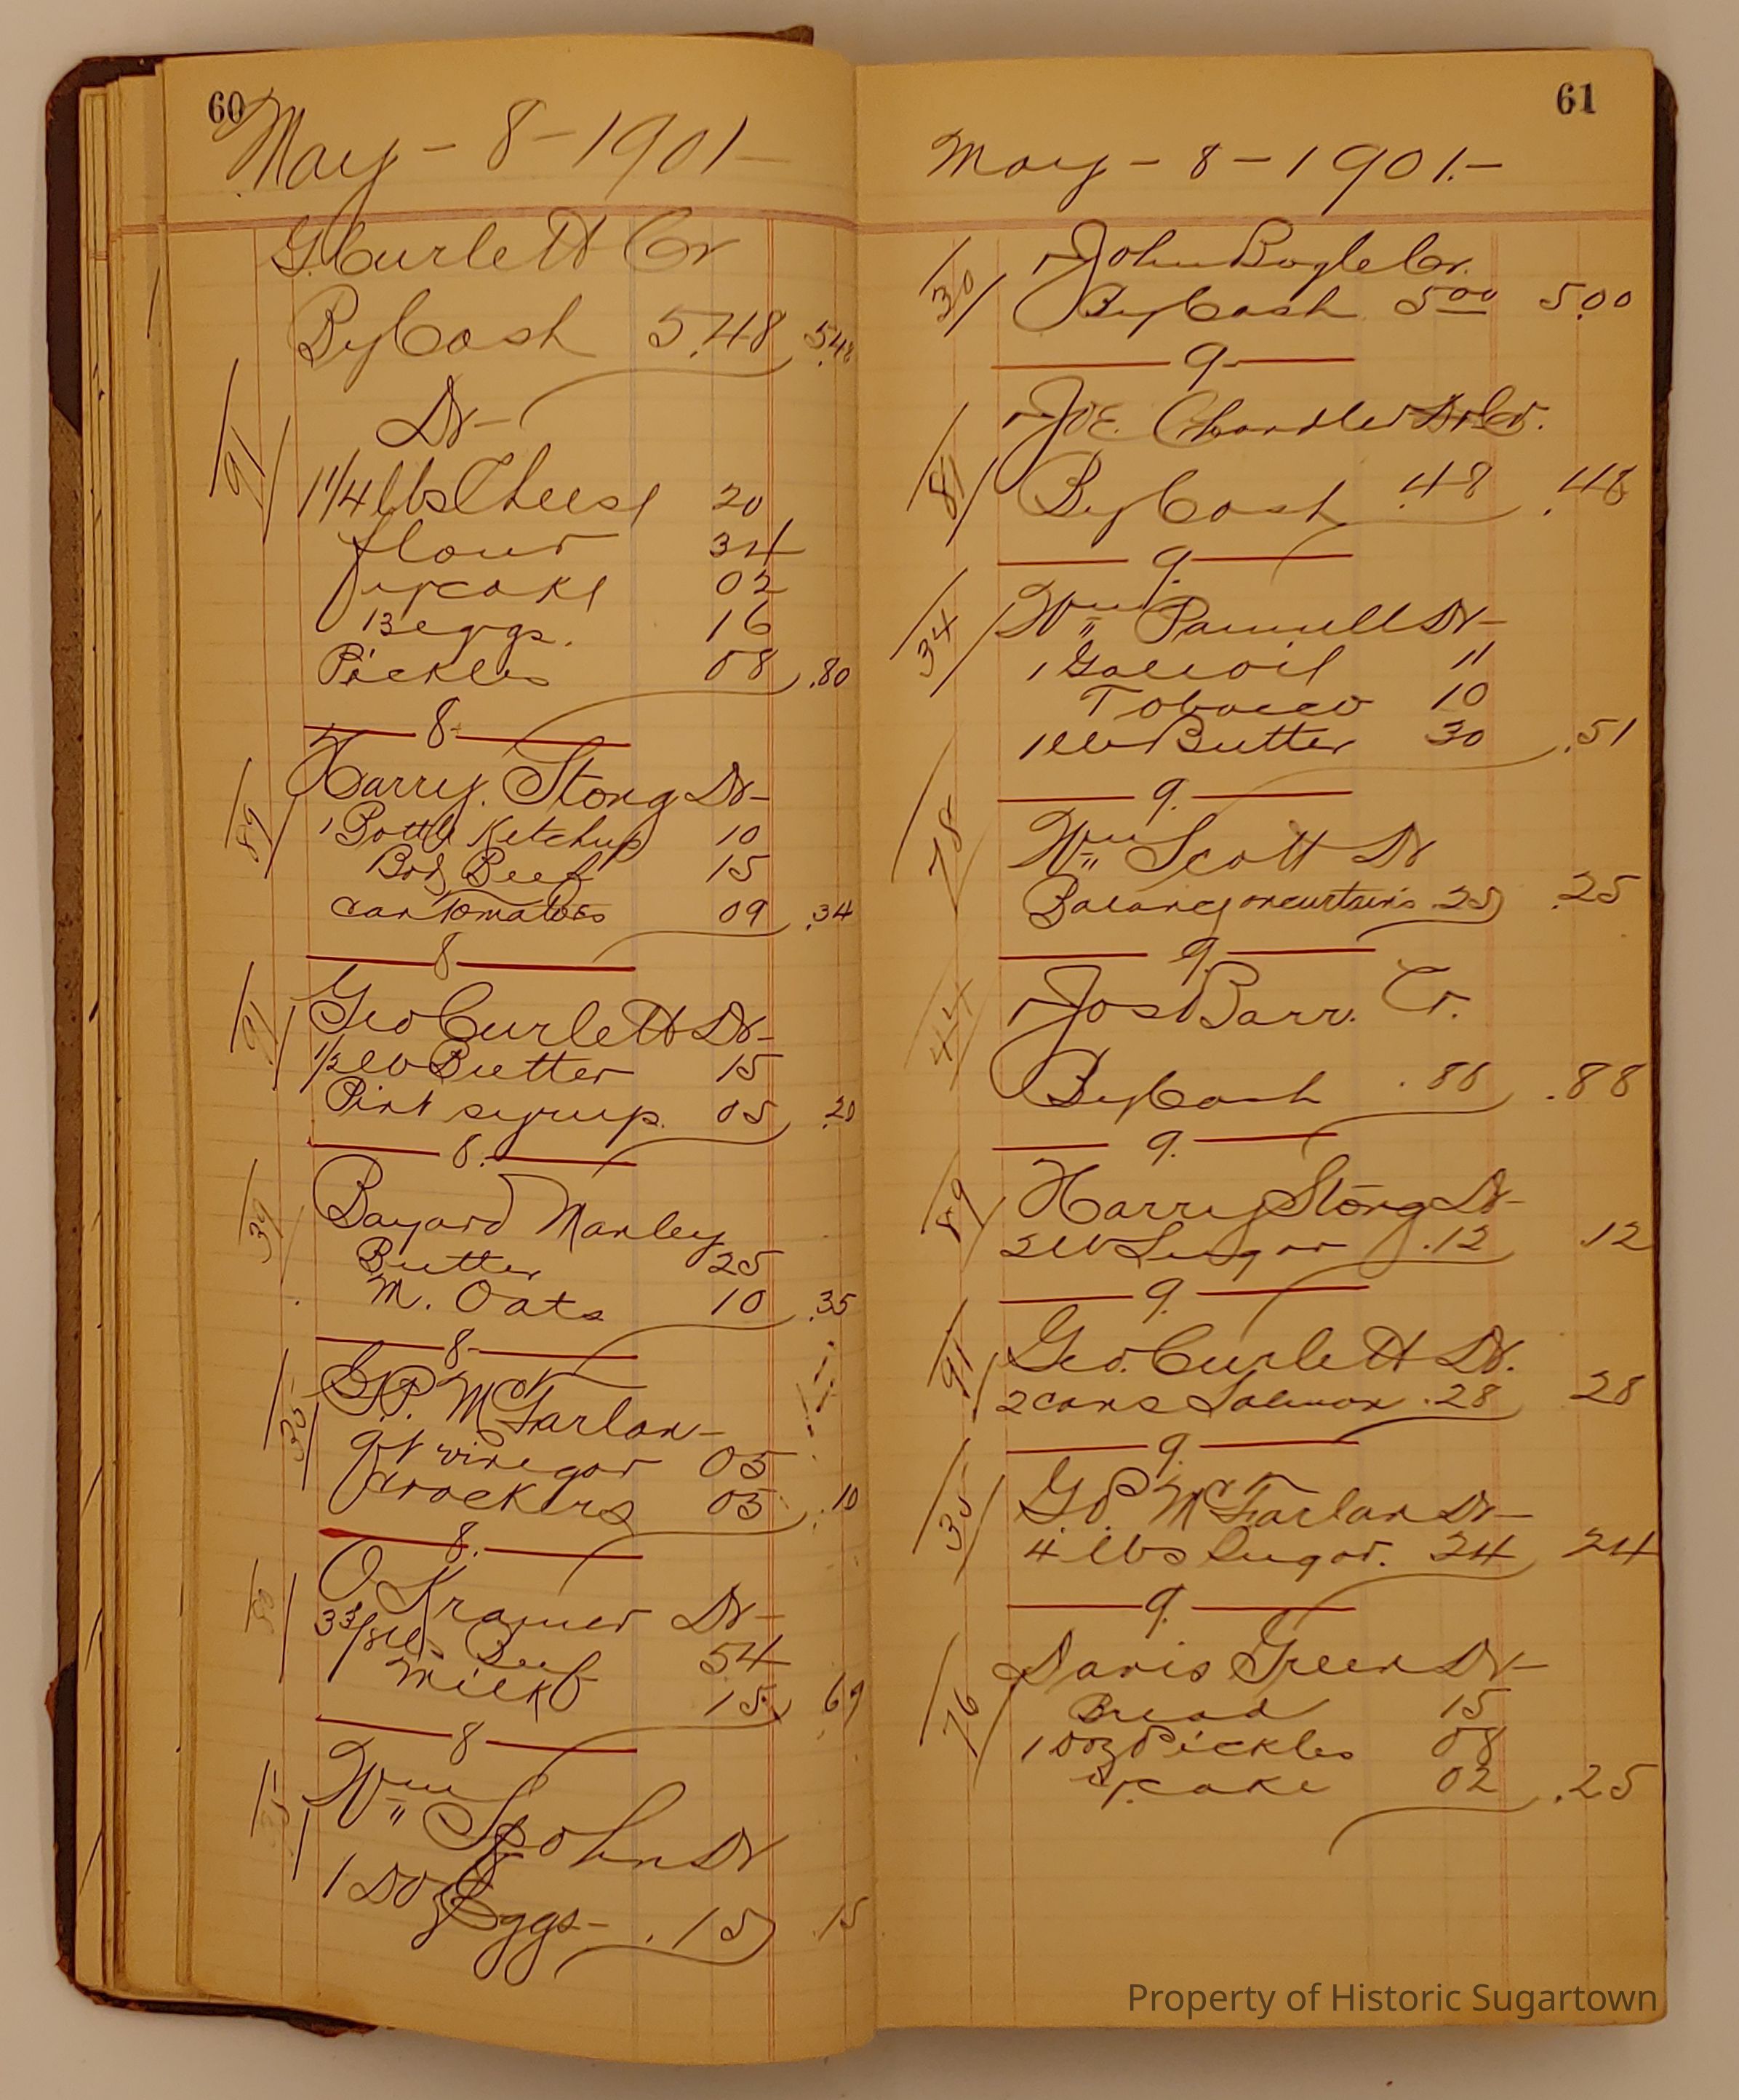 60
May - 8 - 1901 -
G. Curlett Cr
By Cash 5.48 5.48
Dr -
91
1 1/4 lbs Cheese 20
flour 34
yrcake 02
13 eggs. 16
Pickles 08 .80
8-
Harry. Stong Dr -
89
1 Bottle Ketchup 10
Beef 15
can tomatoes 09 .34
8
Geo Curlett Dr -
91
1/2 lb Butter 15
Pint syrup. 05 .20
8.
Bayard Manley
39
Butter 25
M. Oats 10 .35
8-
G.P. McFarlan -
35
qt vinegar 05
crackers 05 .10
8.
O Kramer Dr -
3 3/8 lbs Beef 54
Milk 15 69
8
Wm Spohn Dr
1 Doz Eggs - .15 .15
61
May - 8 - 1901. -
John Bogle Cr.
30
By Cash 5 00 5.00
9-
Joe. Chandler Dr Cr.
81
By Cash .48 .48
9.
Wm Pannell Dr -
34
1 Gal oil 11
Tobacco 10
1 lb Butter 30 .51
9.
Wm Scott Dr
78
Balance on curtains .25 .25
9.
Jos Barr. Cr.
44
By Cash .88 .88
9.
Harry Stong Dr -
89
2 lb Sugar .12 .12
9.
Geo. Curlett Dr.
91
2 cans Salmon .28 28
9.
G.P. McFarlan Dr -
35
4 lbs Sugar. 24 24
9.
Davis Green Dr -
76
Bread 15
1 Doz Pickles 08
yr. cake 02 .25
Property of Historic Sugartown